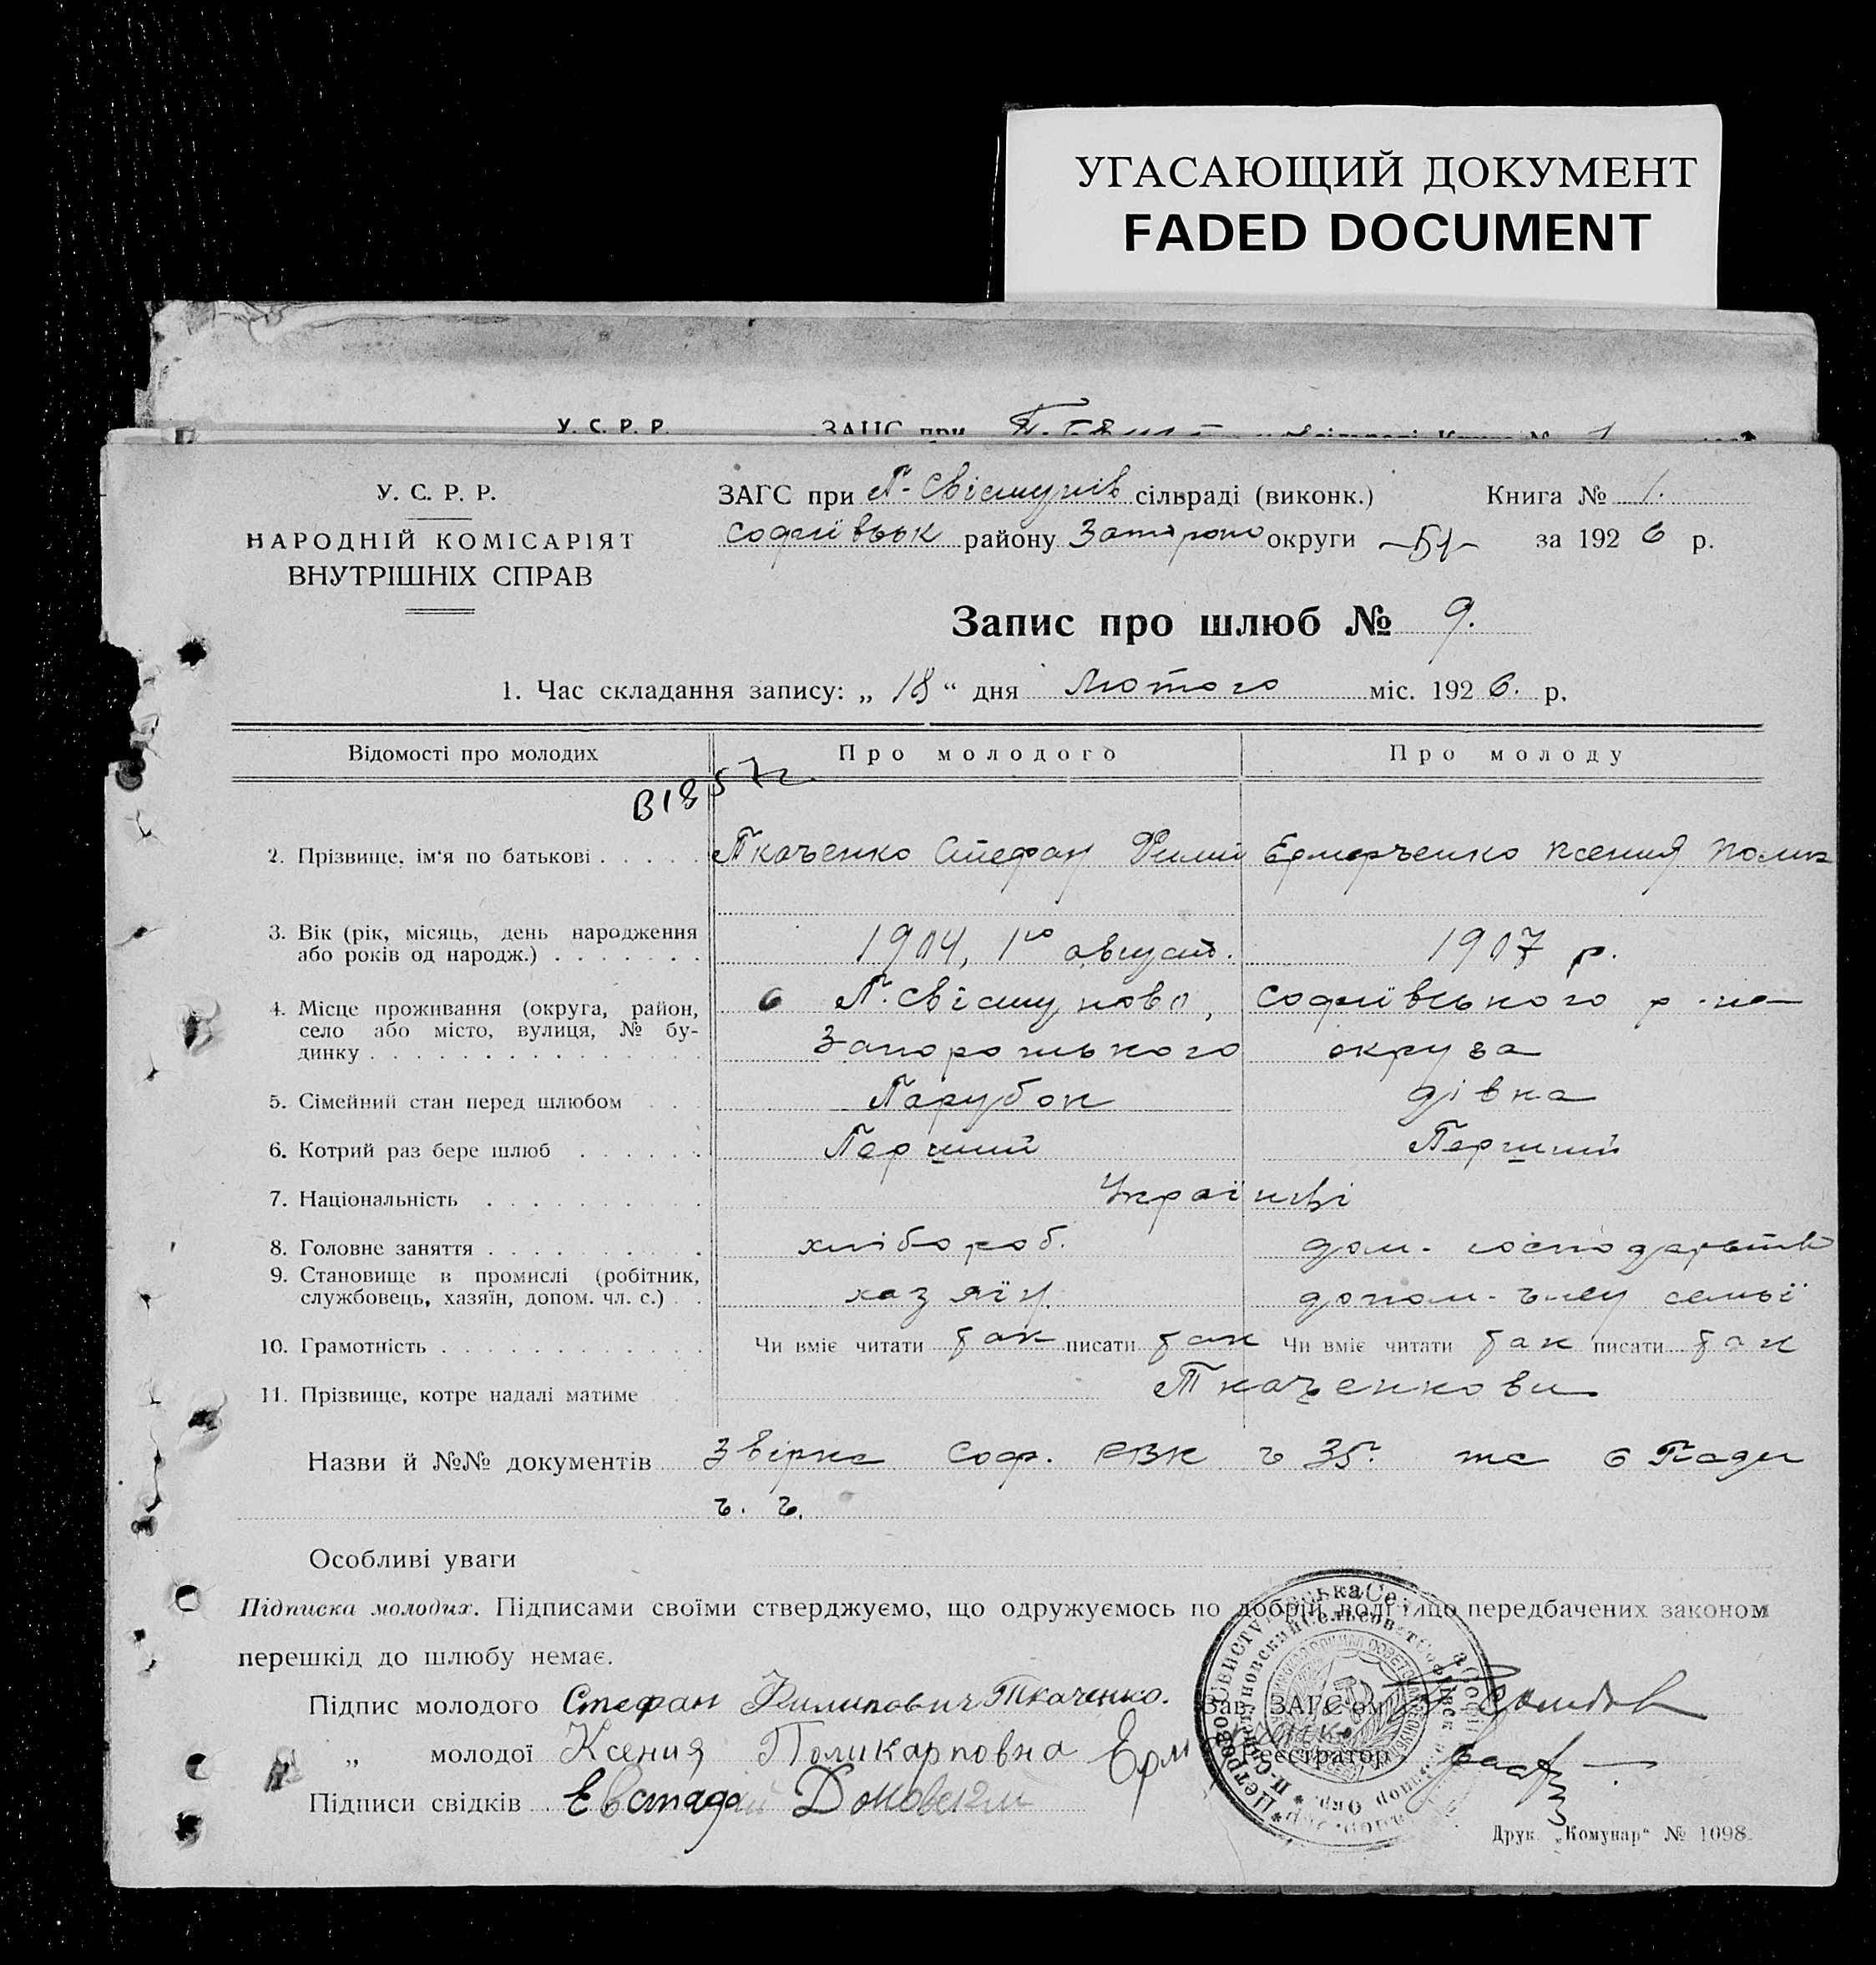 УГАСАЮЩИЙ ДОКУМЕНТ
FADED DOCUMENT
У. С. Р. Р. ЗАГС при
У. С. Р. Р.
НАРОДНІЙ КОМІСАРІЯТ
ВНУТРІШНІХ СПРАВ
ЗАГС при П-Свістунів сільраді (виконк.) Книга № 1.
Софиївськ району Запорож округи -51- за 1926 р.
Запис про шлюб № 9.
1. Час складання запису: „ 18 “ дня Лютого міс. 1926. р.
Відомості про молодих Про молодого Про молоду
2. Прізвище, ім‘я по батькові Ткаченко Стефан Филип Ермарченко Ксения Полик
3. Вік (рік, місяць, день народження або років од народж.) 1904, 1го август. 1907 р.
4. Місце проживання (округа, район, село або місто, вулиця, № будинку
с П. Свістуново, Софиївського р-на
Запорожського округа
5. Сімейний стан перед шлюбом Парубок дівка
6. Котрий раз бере шлюб Перший Перший
7. Національність Українці
8. Головне заняття хлібороб. дом. господарство
9. Становище в промислі (робітник, службовець, хазяїн, допом. чл. с.) хазяїн. допом. члену семьї
10. Грамотність Чи вміє читати так писати так Чи вміє читати так писати так
11. Прізвище, котре надалі матиме Ткаченкови
Назви й №№ документів Звірка Соф. РВК ч 35. та с Ради
ч. ч.
Особливі уваги
Підписка молодих. Підписами своїми стверджуємо, що одружуємось по добрій волі і що передбачених законом
перешкід до шлюбу немає.
Підпис молодого Стефан Филипович Ткаченко. Зав. ЗАГС‘ом
„ молодої Ксения Поликарповна Ерм Реєстратор
Підписи свідків Евстафий
Друк. „Комунар“ № 1098.